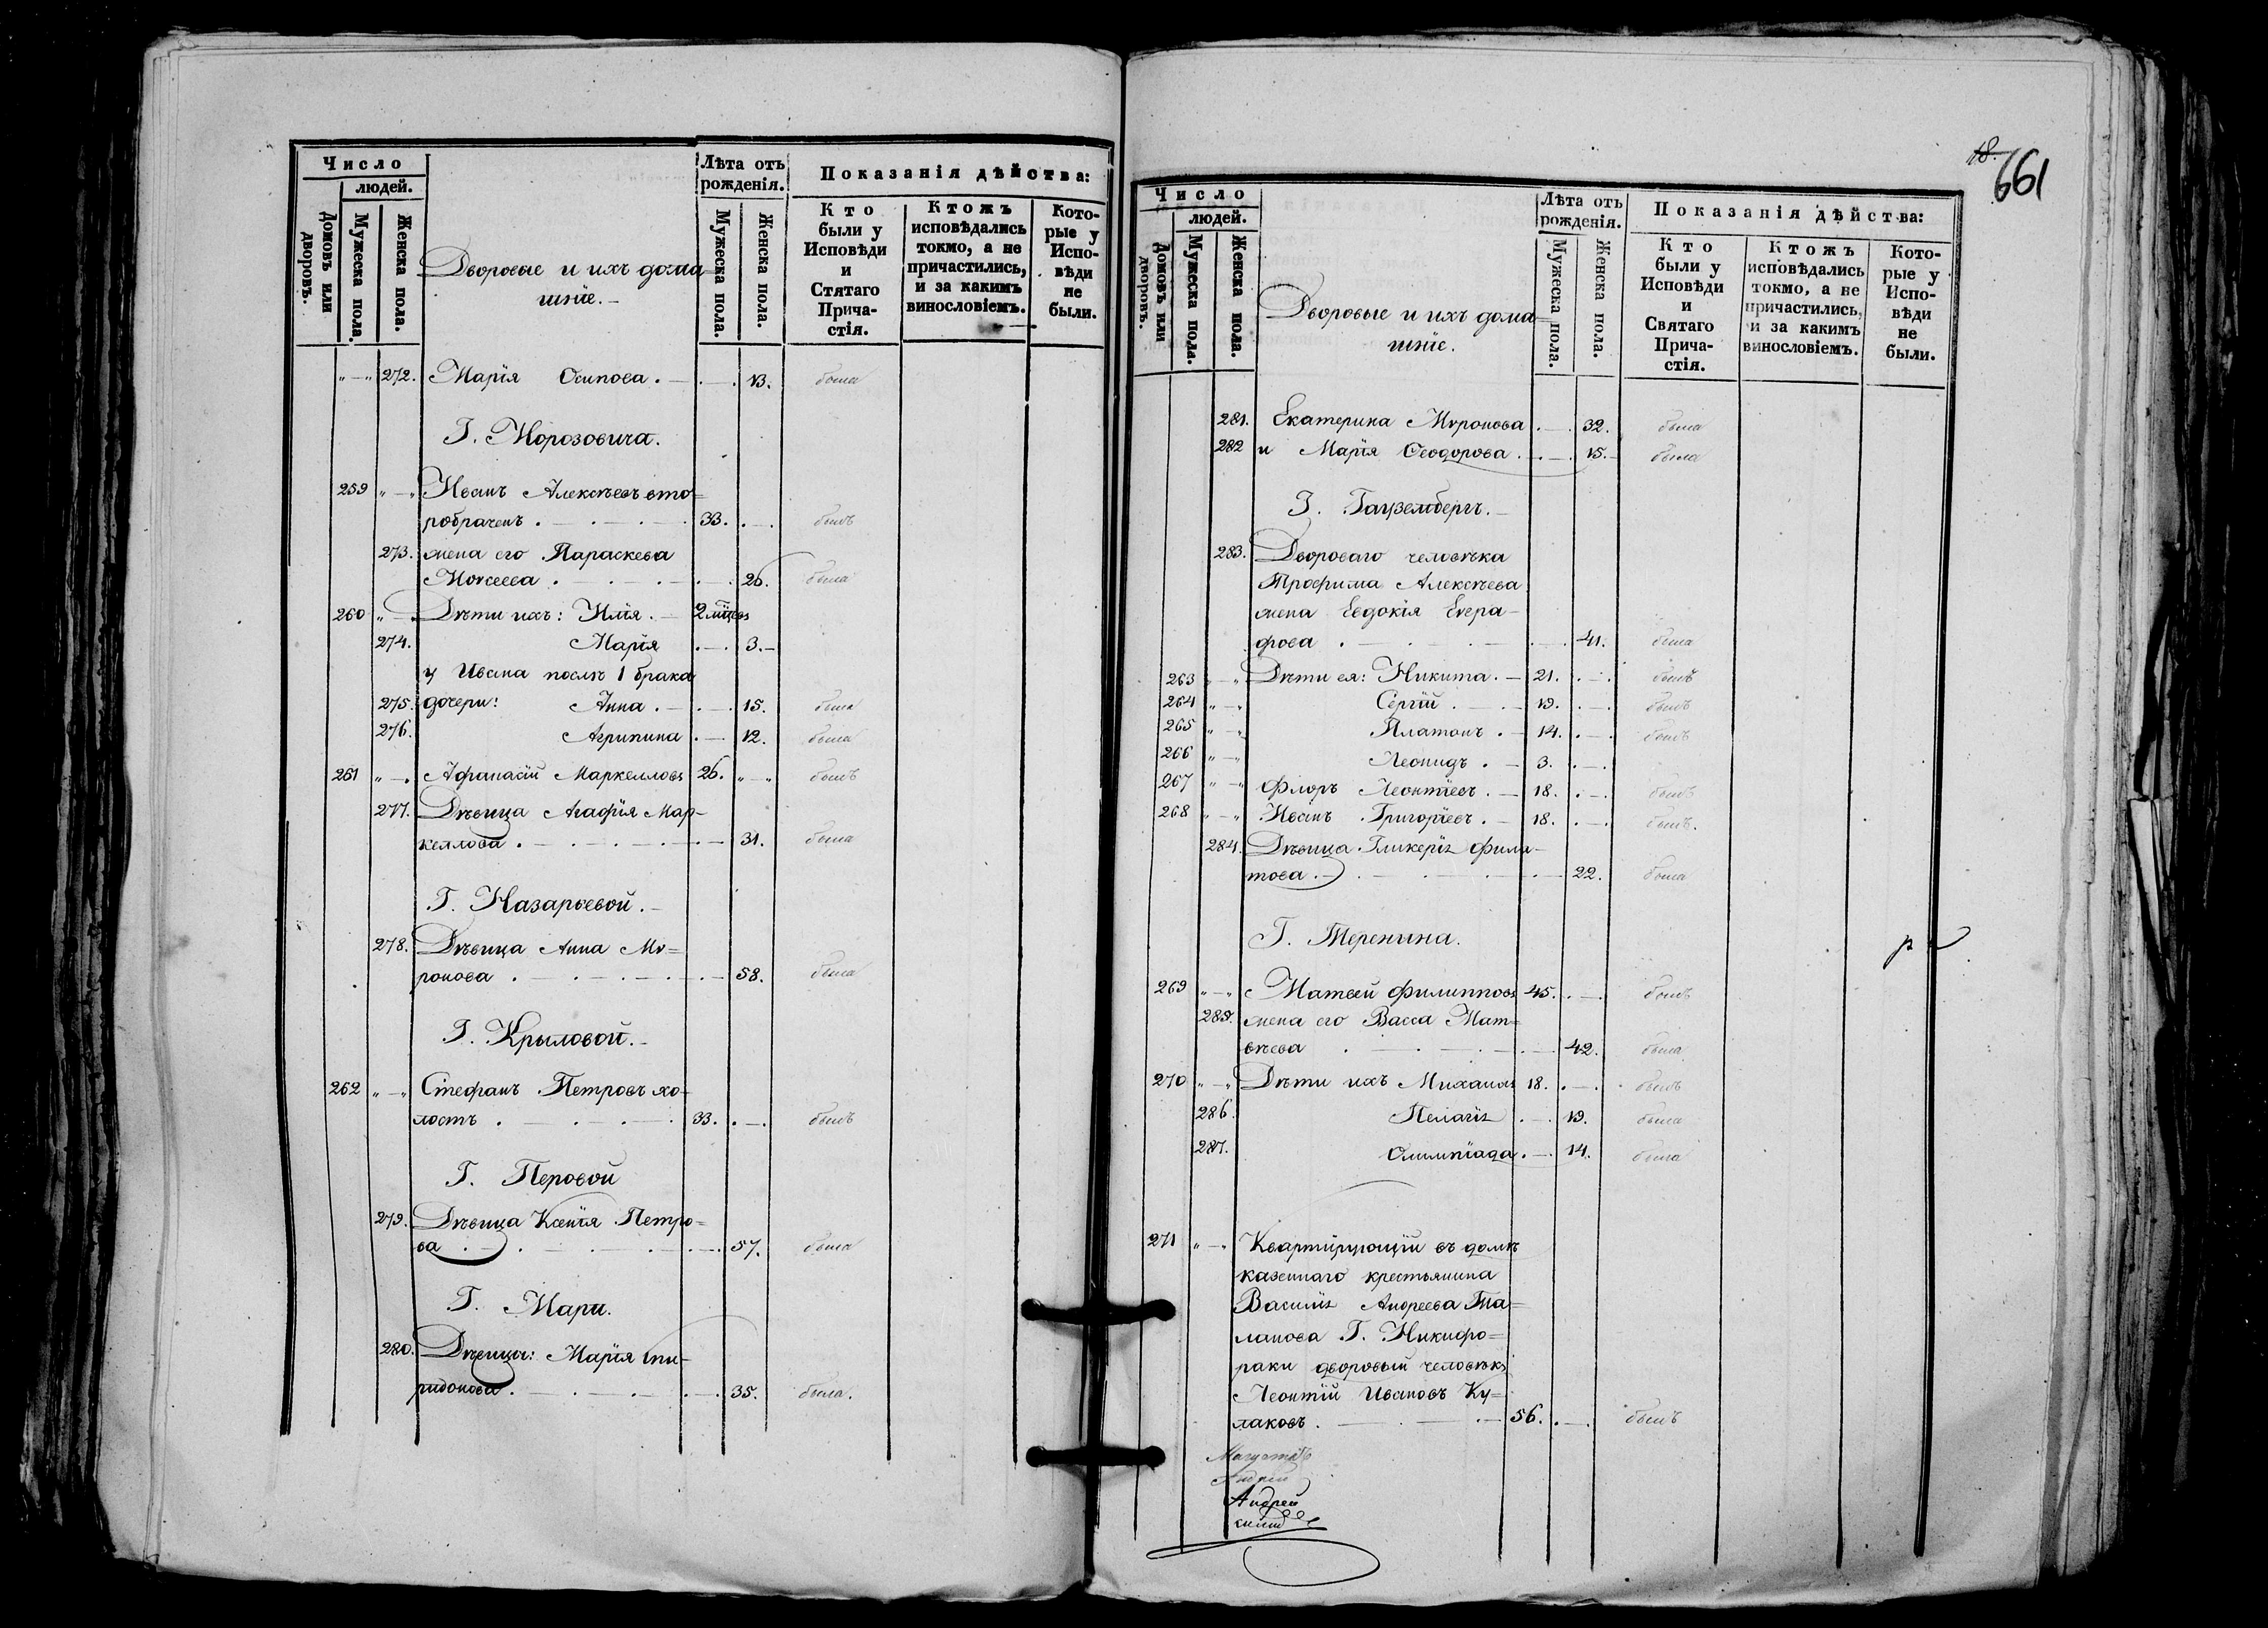 Число
людей.
Домовъ или дворовъ.
Мужеска пола.
Женска пола.
Дворовые и ихъ дома=
шніе. –
Лѣта отъ
рожденія.
Мужеска пола.
Женска пола.
Показанія дѣйства:
Кто
были у
Исповѣди
и
Стятаго
Прича-
стія.
Ктожъ
исповѣдались
токмо, а не
причастились,
и за какимъ
винословіемъ.
Кото-
рые у
Испо-
вѣди
не
были.
" — " 272. Марія Осипова. — . — . 13. была
Г. Морозовича.
259 " — " Иванъ Алексѣевъ вто=
робраченъ . — . — . — . 33. . — . былъ
273. жена его Параскева
Моѵсеева . — . — . — . 26. была
260 " — . Дѣти ихъ: Илія. — 2 мѣцевъ
274. Марія . — . 3. –
у Ивана послѣ 1 брака
275. дочери: Анна . — . — . 15. была
276. Агрипина . — . 12. была
261 " — . Афанасій Маркелловъ 26. " — " былъ
277. Дѣвица Агафія Мар–
келлова . — . — . — . — 31. была
Г. Назарьевой. –
278. Дѣвица Анна Мѵ=
ронова . — . — . — . — 58. была
Г. Крыловой. –
262 " — " Стефанъ Петровъ хо–
лостъ . — . — . — . 33. . — . былъ
Г. Перовой
279. Дѣвица Ксенія Петро=
ва . — . — . — . — . 57. была
Г. Мари.
280. Дѣвица: Марія Спи–
ридонова . — . — . — . 35. была.
18.
661
Число
людей.
Домовъ или дворовъ.
Мужеска пола.
Женска пола.
Дворовые и ихъ дома=
шніе.
Лѣта отъ
рожденія.
Мужеска пола.
Женска пола.
Показанія дѣйства:
Кто
были у
Исповѣди
и
Святаго
Прича-
стія.
Ктожъ
исповѣдались
токмо, а не
причастились,
и за какимъ
винословіемъ.
Кото-
рые у
Испо-
вѣди
не
были.
281. Екатерина Мѵронова . — . 32. была
282 и Марія Ѳеодорова . . — . 15. – была
Г. Гаузембергъ. –
283. Двороваго человѣка
Трофима Алексѣева
жена Евдокія Евгра–
фова . — . — . — . 41. была
263 " — " Дѣти ея: Никита. — 21. . — . былъ
264 " — " Сергій . — . — 19. . — . былъ
265 " — " Платонъ . — 14. . — . былъ
266 " — " Леонидъ . — 3. . — .
267 " — " Флоръ Леонтіевъ . — 18. . — . былъ
268 " — " Иванъ Григоріевъ . — 18. . — . былъ.
284. Дѣвица Гликерія Фили–
това . — . — . — . — 22. была
Г. Теренина.
269 " — " Матвей Филипповъ 45. . — . былъ
285. жена его Васса Мат=
вѣева . — . — . — 42. была
270 " — " Дѣти ихъ Михаилъ 18. . — . былъ
286. Пелагія . — . 19. была
287. Олимпіада . — . 14. была
271 " — " Квартирующій въ домѣ
казеннаго крестьянина
Василія Андреева Та=
ланова Г. Никифо=
раки дворовый человѣкъ
Леонтій Ивановъ Ку=
лаковъ . — . — . — 56. . — . былъ
Андрей